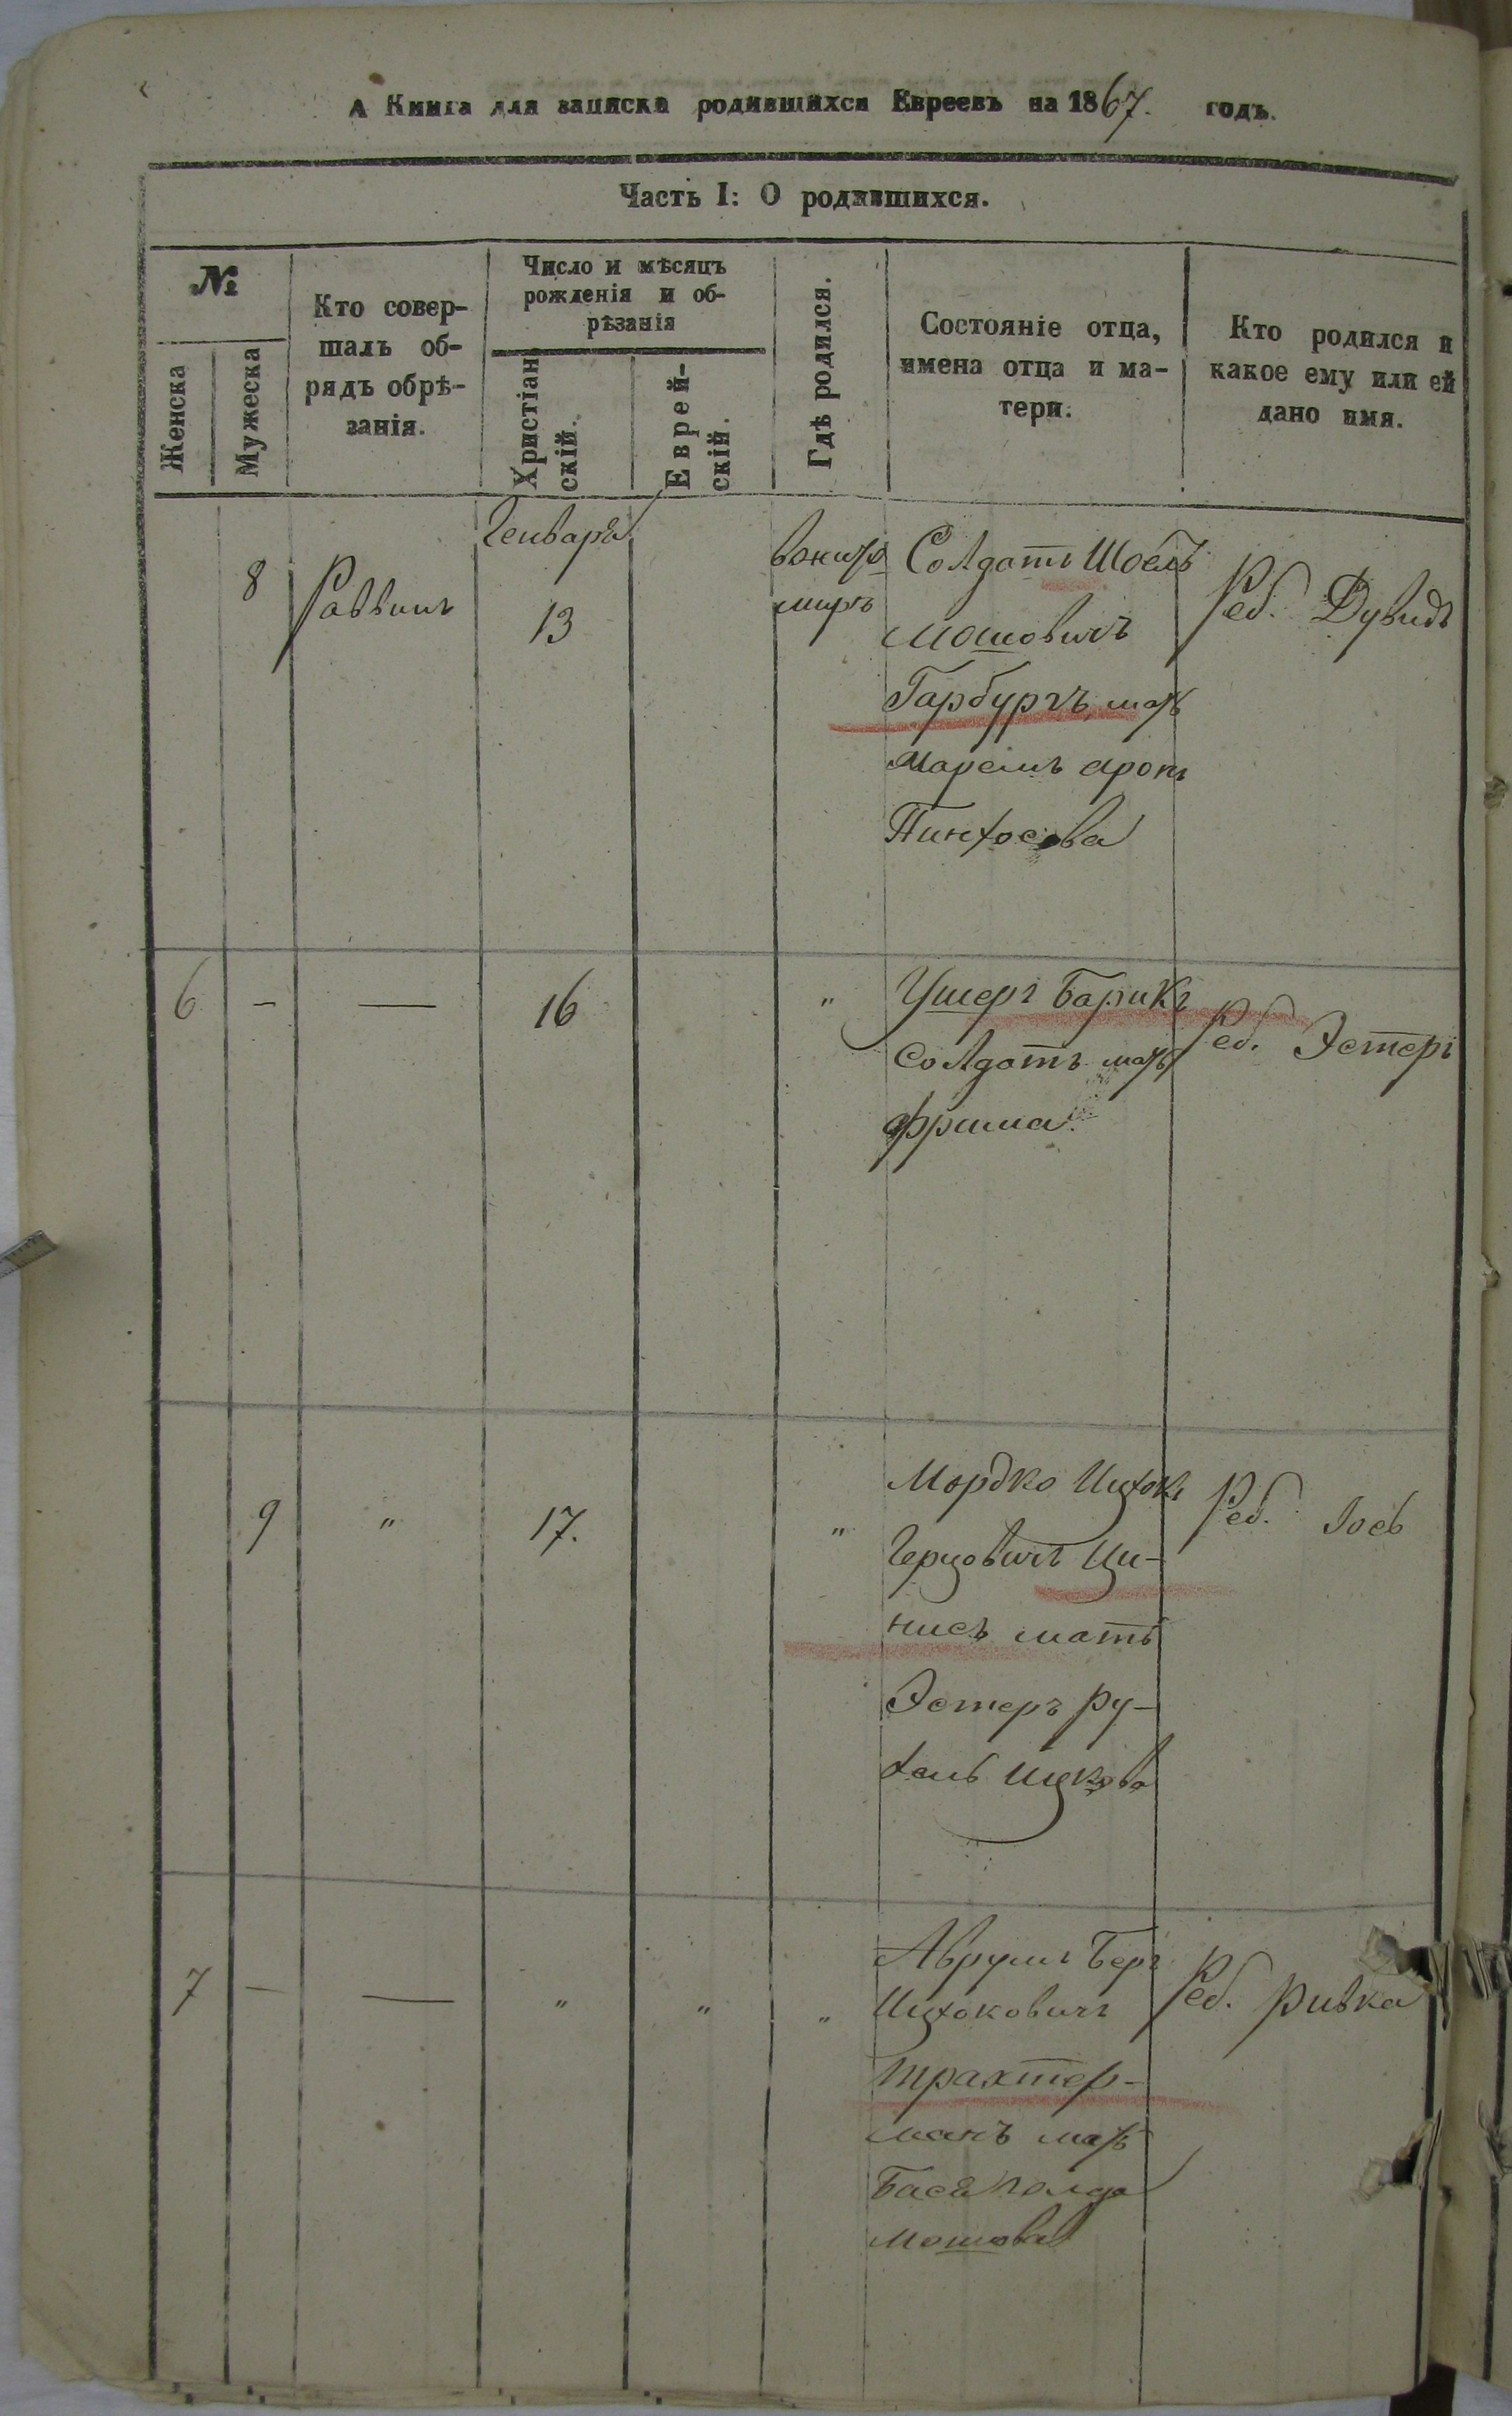 А Книга для записки родившихся Евреевъ на 1867. годъ.
Часть I: О родившихся.
№
Женска
Мужеска
Кто совер-
шалъ об-
рядъ обрѣ-
занія.
Число и мѣсяцъ
рожденія и об-
рѣзанія
Христіан
скій.
Еврей-
скій.
Гдѣ родился.
Состояніе отца,
имена отца и ма-
тери.
Кто родился и
какое ему или ей
дано имя.
8
Раввинъ
Генваря
13
Солдатъ Шоель
Мошовичъ
Гарбургъ, мать
Пинхосова
Реб. Дувидъ
6 — — 16 "
Ушеръ Барикъ
Солдатъ мать
Фрима
Реб. Эстеръ
9 " 17. "
Мордко Ицхокъ
Герцовичъ Ци-
нисъ мать
Эстеръ Ру-
хель Ицкова
Реб. Іось
7 — — " " "
Аврумъ Беръ
Ицхоковичъ
Трахтер-
манъ мать
Бася
Мошова
Реб. Ривка